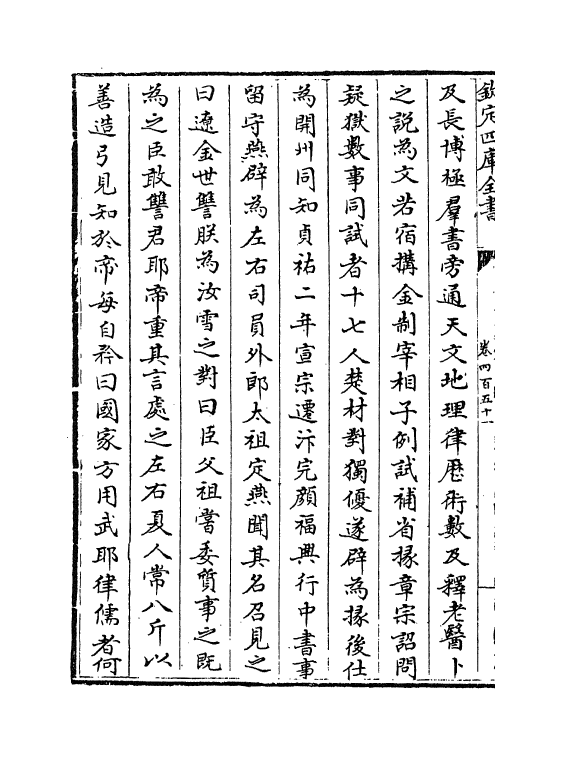 欽定四庫全書
卷四百五十一
及長博極羣書旁通天文地理律厯術數及釋老醫卜
之說為文若宿搆金制宰相子例試補省掾章宗詔問
疑獄數事同試者十七人楚材對獨優遂辟為掾後仕
為開州同知貞祐二年宣宗遷汴完顔福興行中書事
留守燕辟為左右司員外郎太祖定燕聞其名召見之
曰遼金世讐朕為汝雪之對曰臣父祖嘗委質事之旣
為之臣敢讐君耶帝重其言處之左右夏人常八斤以
善造弓見知於帝每自矜曰國家方用武耶律儒者何